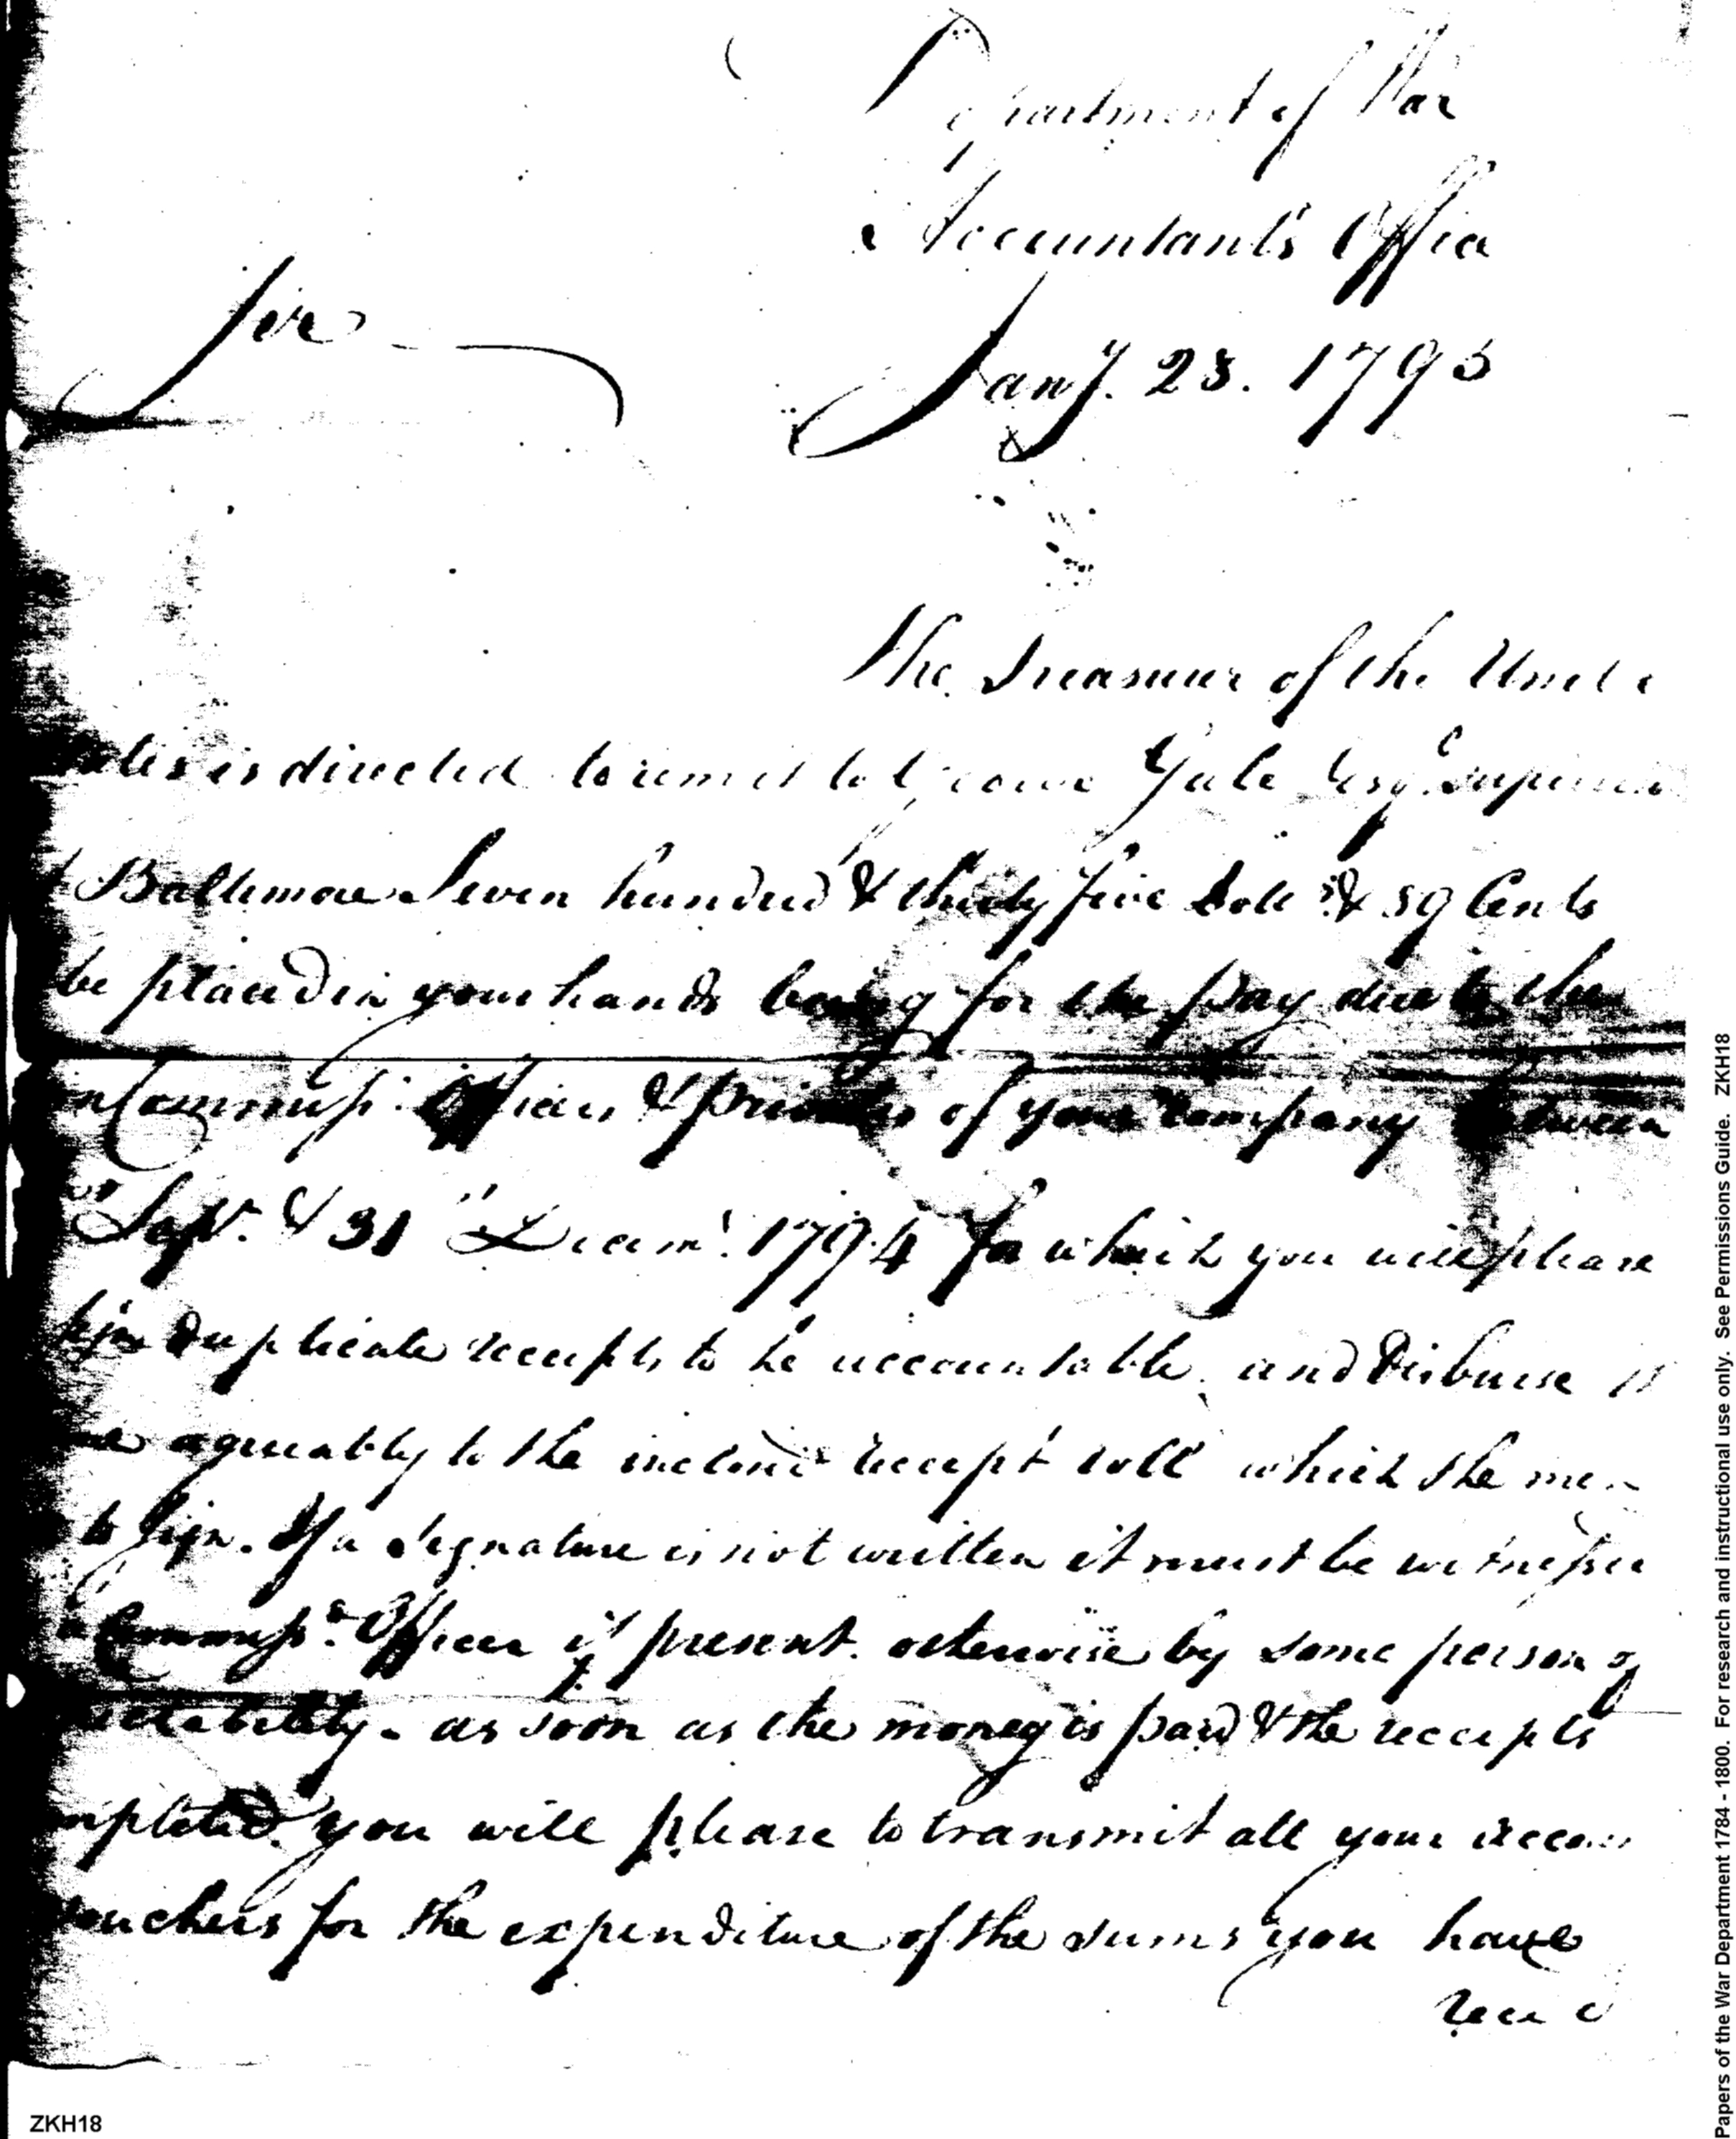 Department of War
Accountant's Office
Sir
Jany. 23. 1795
The Treasurer of the Unite
is directed to remit to George Gale Esqr. Supervis
Baltimore Seven hundred & thirty five Dolls & 59 Cents
be placed in your hands being for the pay due to the
Commissd. Officers & privates of your company between
Sepr. & 31st Decemr. 1794 for which you will please
sign duplicate receipts to be accountable and Disburse
agreeably to the inclosed receipt roll which the men
to sign. If a Signature is not written it must be witnesse
a Commissd. Officer if present. otherwise by some person of
as soon as the money is paid & the receipts
you will please to transmit all your accou
vouchers for the expenditure of the sums you have
recei d
ZKH18
Papers of the War Department 1784 - 1800. For research and instructional use only. See Permissions Guide. ZKH18